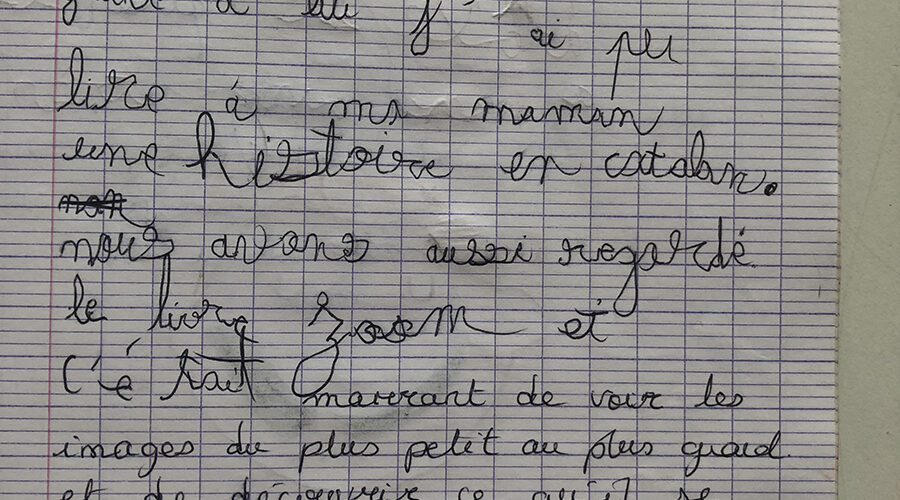 grace à lui j'ai pu
lire à ma maman
une histoire en catalan.
nous avons aussi regardé
le livre zoom et
C'était marrant de voir les
images du plus petit au plus grand
et de découvrir ce qu'il se